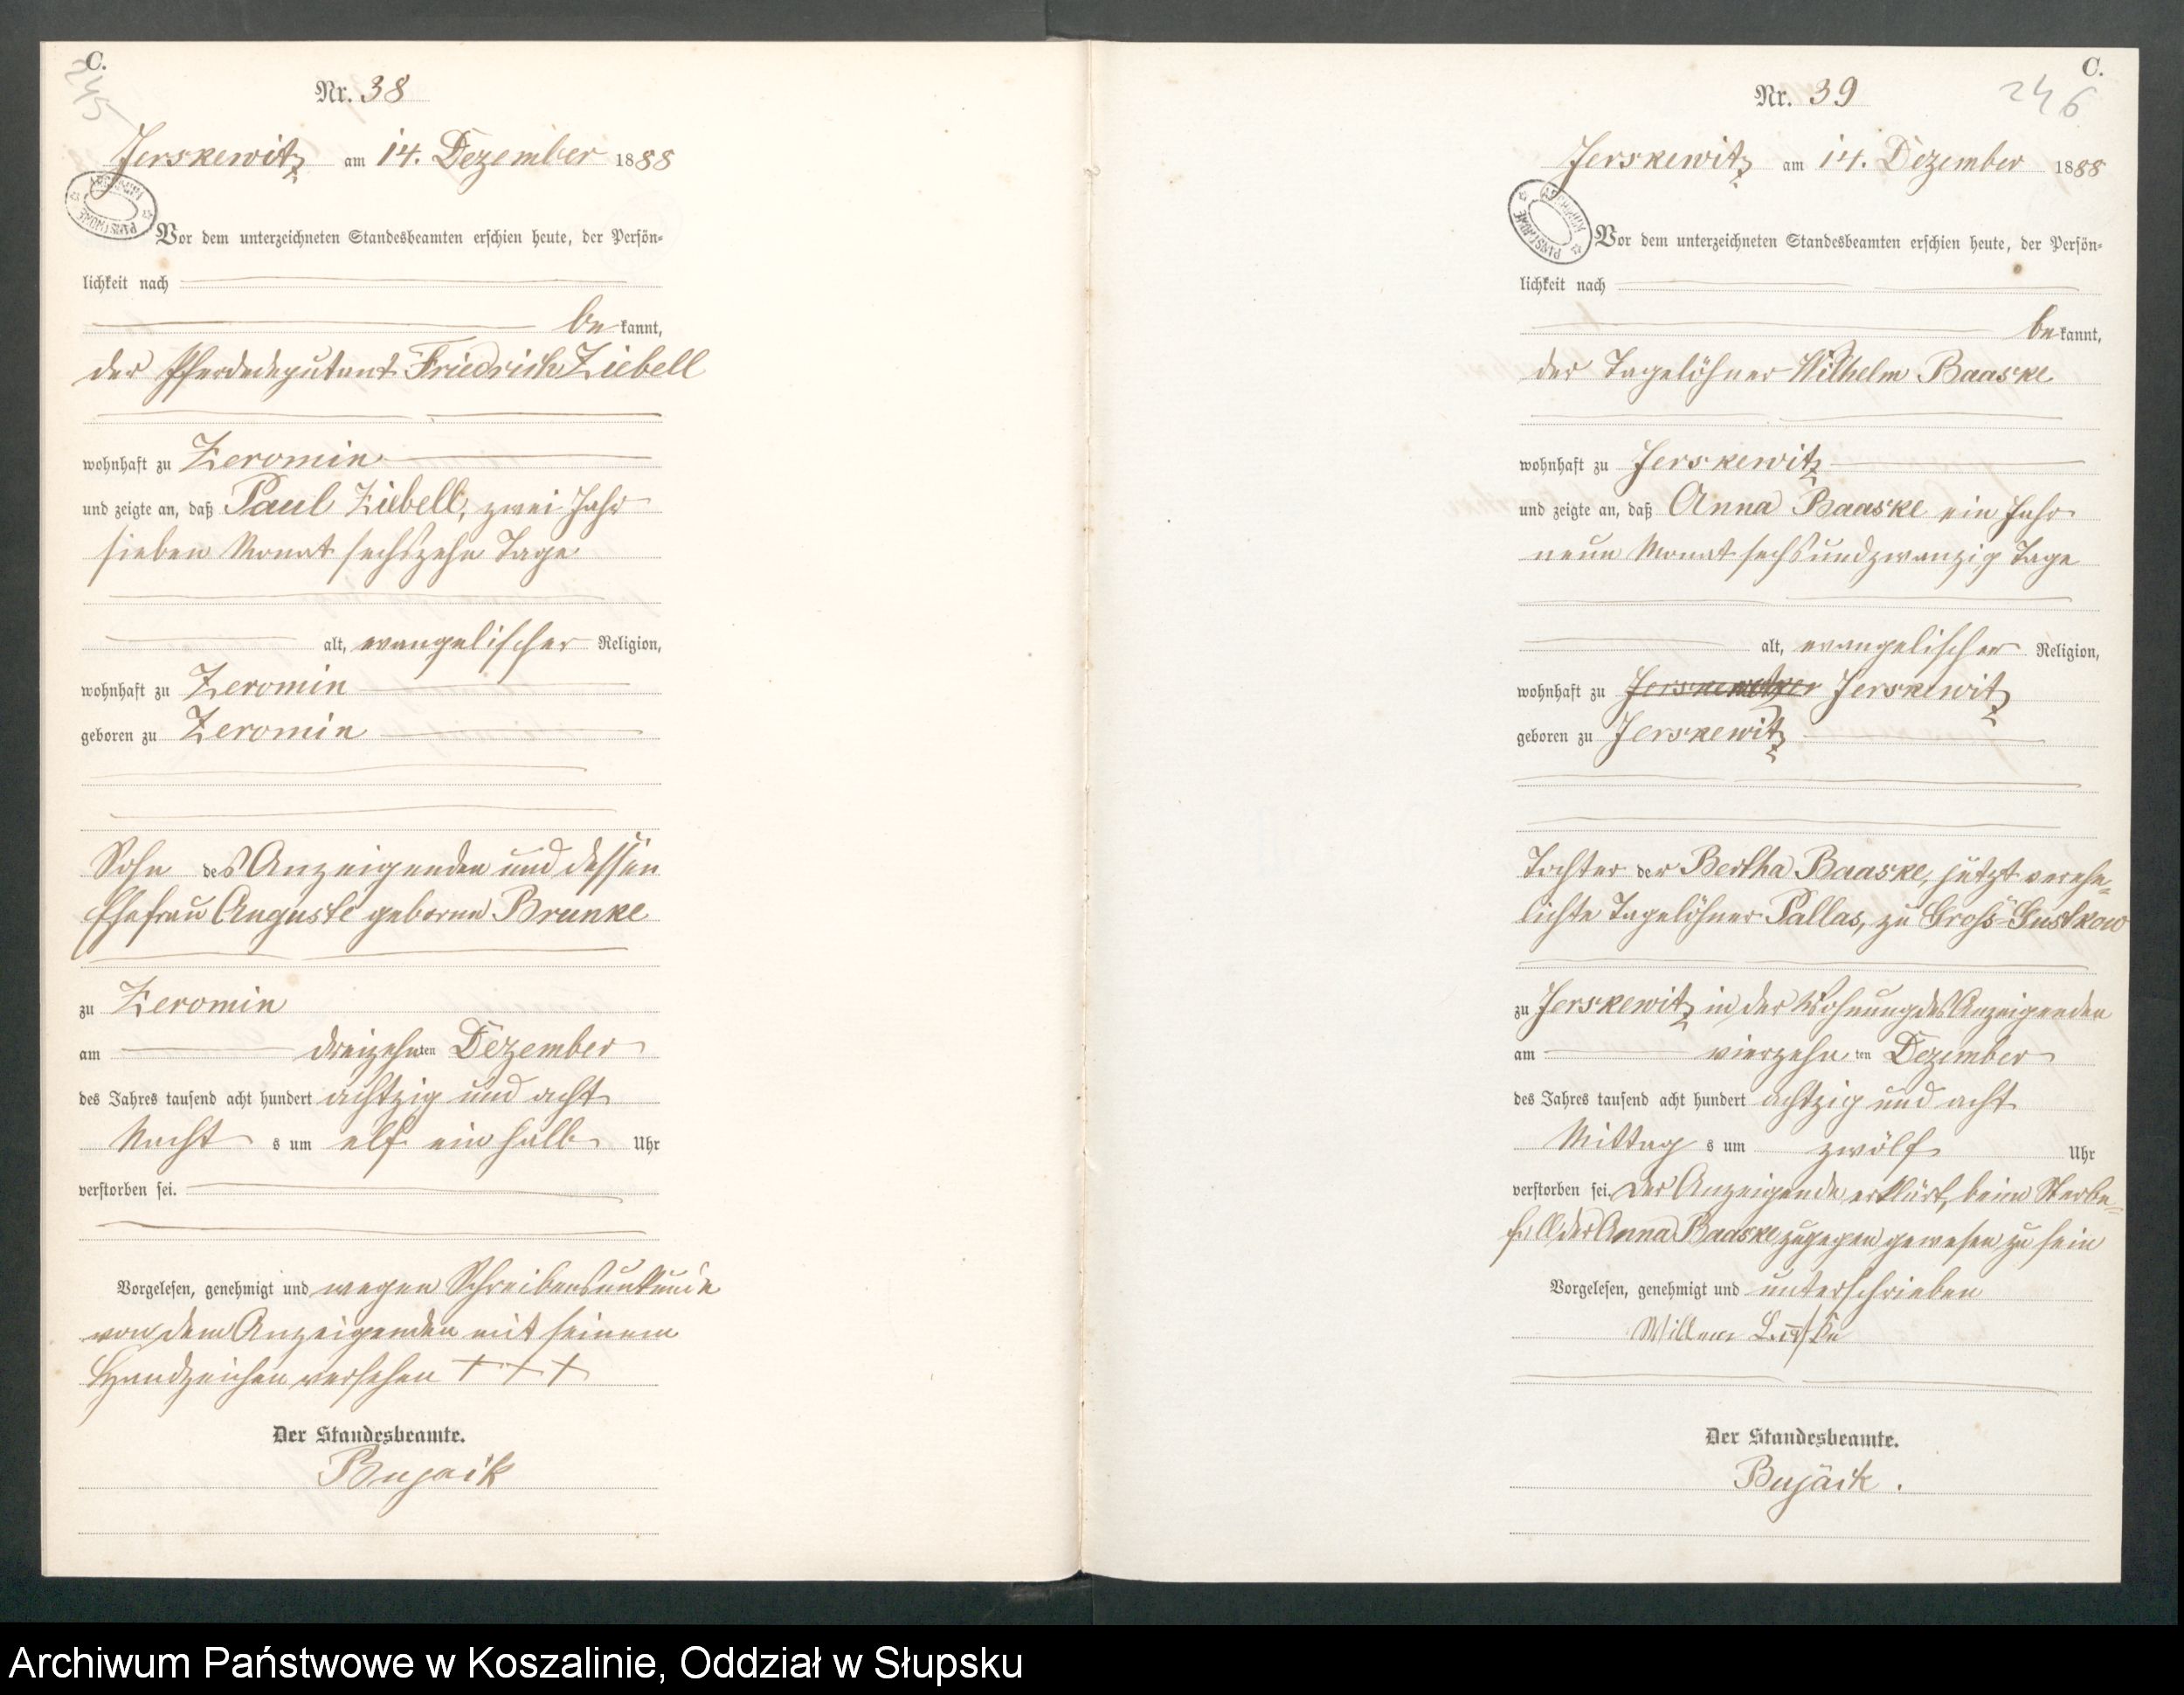 C.
245
Nr. 38
Jerskewitz am 14. Dezember 1888
Vor dem unterzeichneten Standesbeamten erschien heute, der Persön-
lichkeit nach
bekannt,
der Pferdedeputant Friedrich Ziebell
wohnhaft zu Zeromin
und zeigte an, daß Paul Ziebell, zwei Jahr
sieben Monat sechszehn Tage
alt, evangelischer Religion,
wohnhaft zu Zeromin
geboren zu Zeromin
Sohn des Anzeigenden und dessen
Ehefrau Auguste geborne Brunke
zu Zeromin
am dreizehnten Dezember
des Jahres tausend acht hundert achtzig und acht
Nachts um elf ein halb Uhr
verstorben sei.
Vorgelesen, genehmigt und wegen Schreibensunkunde
von dem Anzeigenden mit seinem
Handzeichen versehen + + +
Der Standesbeamte.
Bujack
C.
246
Nr. 39
Jerskewitz am 14. Dezember 1888
Vor dem unterzeichneten Standesbeamten erschien heute, der Persön-
lichkeit nach
bekannt,
der Tagelöhner Wilhelm Baaske
wohnhaft zu Jerskewitz
und zeigte an, daß Anna Baaske ein Jahr
neun Monat sechsundzwanzig Tage
alt, evangelischer Religion,
wohnhaft zu Jerskewitz
geboren zu Jerskewitz
Tochter der Bertha Baaske, jetzt verehe-
lichte Tagelöhner Pallas, zu Groß-Gustkow
zu Jerskewitz in der Wohnung des Anzeigenden
am vierzehnten Dezember
des Jahres tausend acht hundert achtzig und acht
Mittags um zwölf Uhr
verstorben sei. Der Anzeigende erklärt, beim Sterbe-
fall der Anna Baaske zugegen gewesen zu sein
Vorgelesen, genehmigt und unterschrieben
Der Standesbeamte.
Bujack.
Archiwum Państwowe w Koszalinie, Oddział w Słupsku